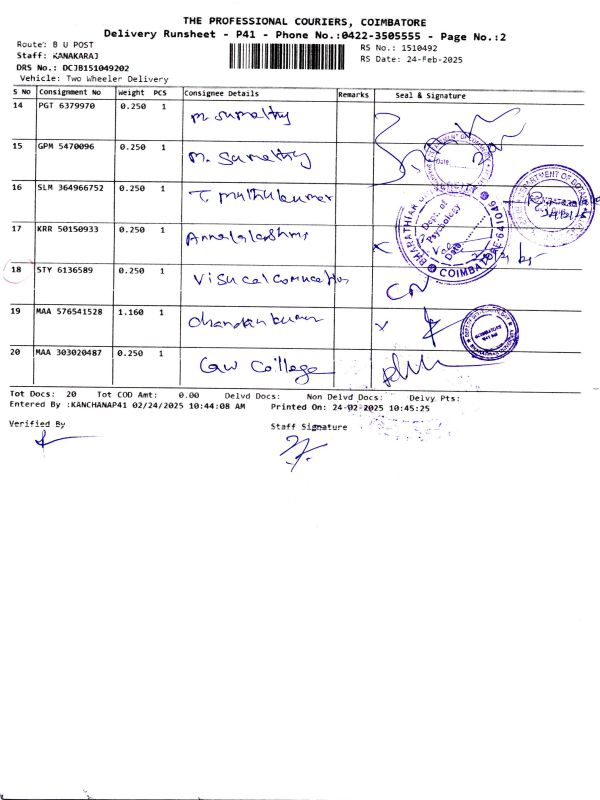 THE PROFESSIONAL COURIERS, COIMBATORE
Delivery Runsheet - P41 - Phone No.:0422-3505555 - Page No.:2
Route: B U POST
Staff: KANAKARAJ
DRS No.: DCJB151049202
Vehicle: Two Wheeler Delivery
RS No.: 1510492
RS Date: 24-Feb-2025
S No Consignment No Weight PCS Consignee Details Remarks Seal & Signature
14 PGT 6379970 0.250 1 M. Sumathy
15 GPM 5470096 0.250 1 M. Sumathy
16 SLM 364966752 0.250 1 T. muthukumar
17 KRR 50150933 0.250 1 Annalakshmi
18 STY 6136589 0.250 1
19 MAA 576541528 1.160 1
20 MAA 303020487 0.250 1 Law College
DEPARTMENT OF BOTANY
BHARATHIAR UNIVERSITY
Dept. of
Psychology
Date
COIMBATORE-641046
Tot Docs: 20 Tot COD Amt: 0.00 Delvd Docs: Non Delvd Docs: Delvy Pts:
Entered By :KANCHANAP41 02/24/2025 10:44:08 AM Printed On: 24-02-2025 10:45:25
Verified By
Staff Signature